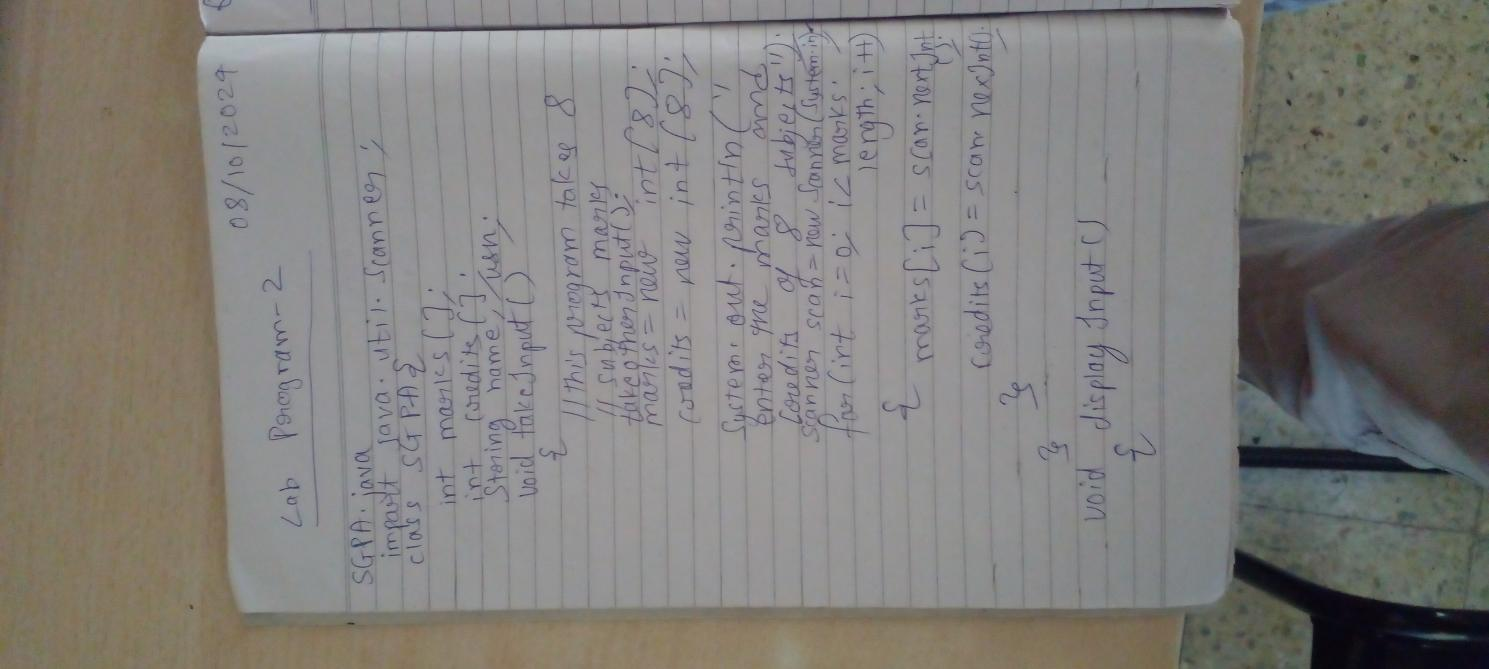 08/10/2024
Lab Program-2
SGPA.java
import java.util.Scanner;
class SGPA{
int marks[];
int credits[];
String name, usn;
void takeInput()
{
//this program takes 8
// subjects marks
takeotherInput();
marks = new int[8];
credits = new int[8];
System.out.println("
enter the marks and
credits of 8 subjects");
Scanner scan = new Scanner(System.in);
for(int i=0; i<marks.
length; i++)
{
marks[i] = scan.nextInt
();
credits[i] = scan.nexInt();
}
}
void displayInput()
{